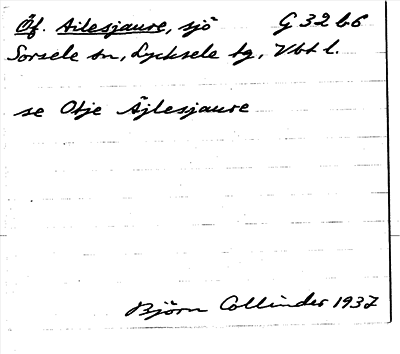 Öf. Ailesjaure, sjö G 32 b6
Sorsele sn, Lycksele tg, Vbt l.
se Otje Äjlesjaure
Björn Collinder 1937